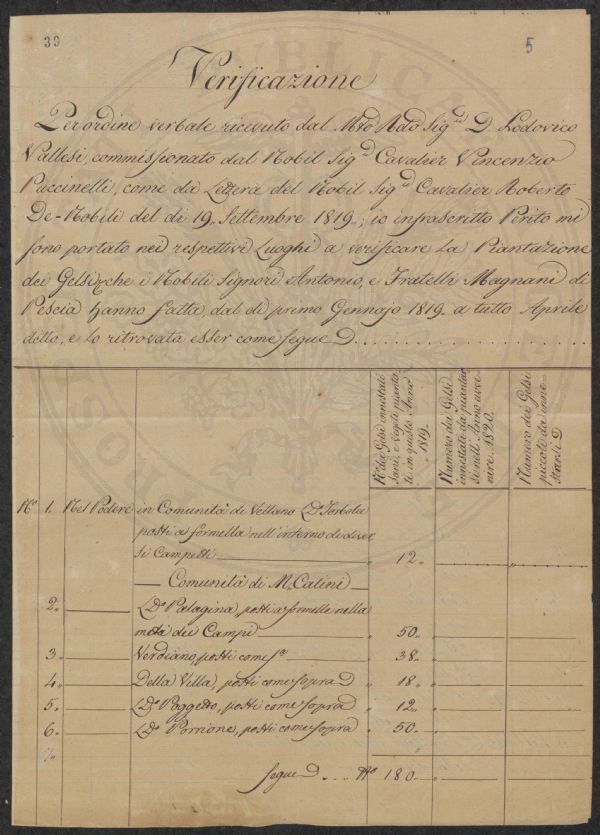 39
5
Verificazione
Per ordine verbale ricevuto dal Mto Rdo Sigre D. Lodovico
Vallesi, commissionato dal Nobil Sigre Cavalier Vincenzio
Puccinelli, come da Lettera del Nobil Sigre Cavalier Roberto
De-Nobili del di 19. Settembre 1819.; io infrascritto Perito mi
sono portato nei respettivi Luoghi a verificare la Piantazione
dei Gelsi, che i Nobili Signori Antonio, e Fratelli Magnani di
Pescia hanno fatta, dal di primo Gennajo 1819. a tutto Aprile
detto, e lo ritrovata esser come segue
No dei Gelsi innestati
sani, e vegeti pianta
ti in questo Anno
1819.
Numero dei Gelsi
innestati da piantar
si nell' Anno avve
nire. 1820.
Numero dei Gelsi
piccoli da inne
starsi
No 1. Nel Podere in Comunità di Vellano Do Torbola
posti a formella nell'interno di diver
si Campetti 12.
Comunità di M. Catini
2. Do Palagina, posti a formelle nella
metà dei Campi 50.
3. Verdiano, posti come sa 38.
4. Della Villa, posti come sopra 18.
5. Do Poggetto, posti come sopra 12.
6. Do Porrione, posti come sopra 50.
7.
segue No 180.